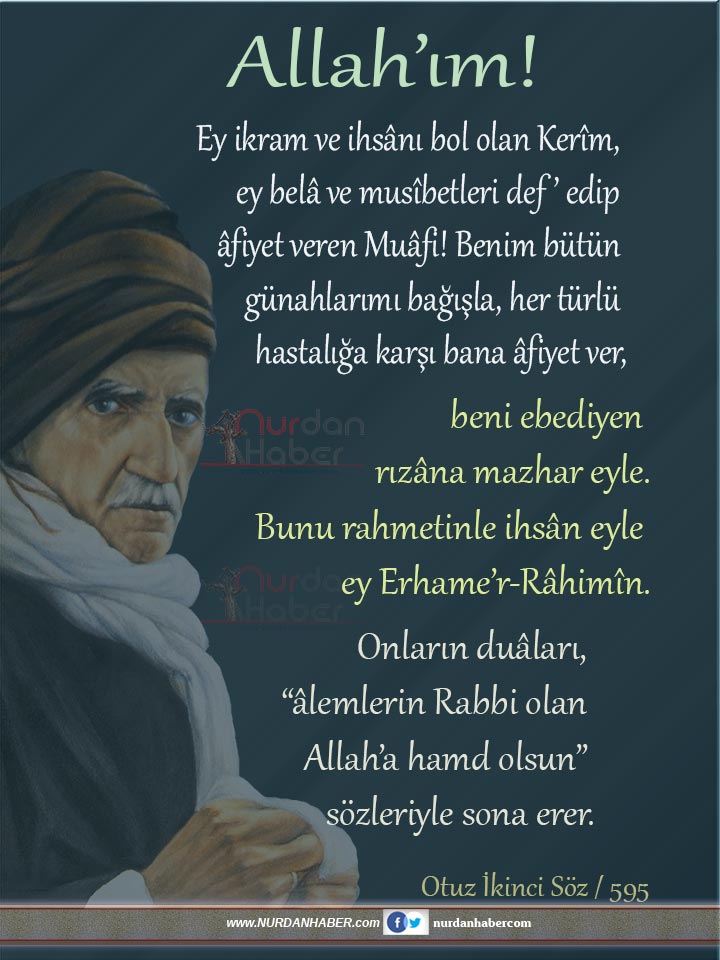 Allah’ım!
Ey ikram ve ihsânı bol olan Kerîm,
ey belâ ve musîbetleri def’ edip
âfiyet veren Muâfi! Benim bütün
günahlarımı bağışla, her türlü
hastalığa karşı bana âfiyet ver,
beni ebediyen
rızâna mazhar eyle.
Bunu rahmetinle ihsân eyle
ey Erhame’r-Râhimîn.
Onların duâları,
“âlemlerin Rabbi olan
Allah’a hamd olsun”
sözleriyle sona erer.
Otuz İkinci Söz / 595
Nurdan
Haber
Nurdan
Haber
www.NURDANHABER.com nurdanhabercom